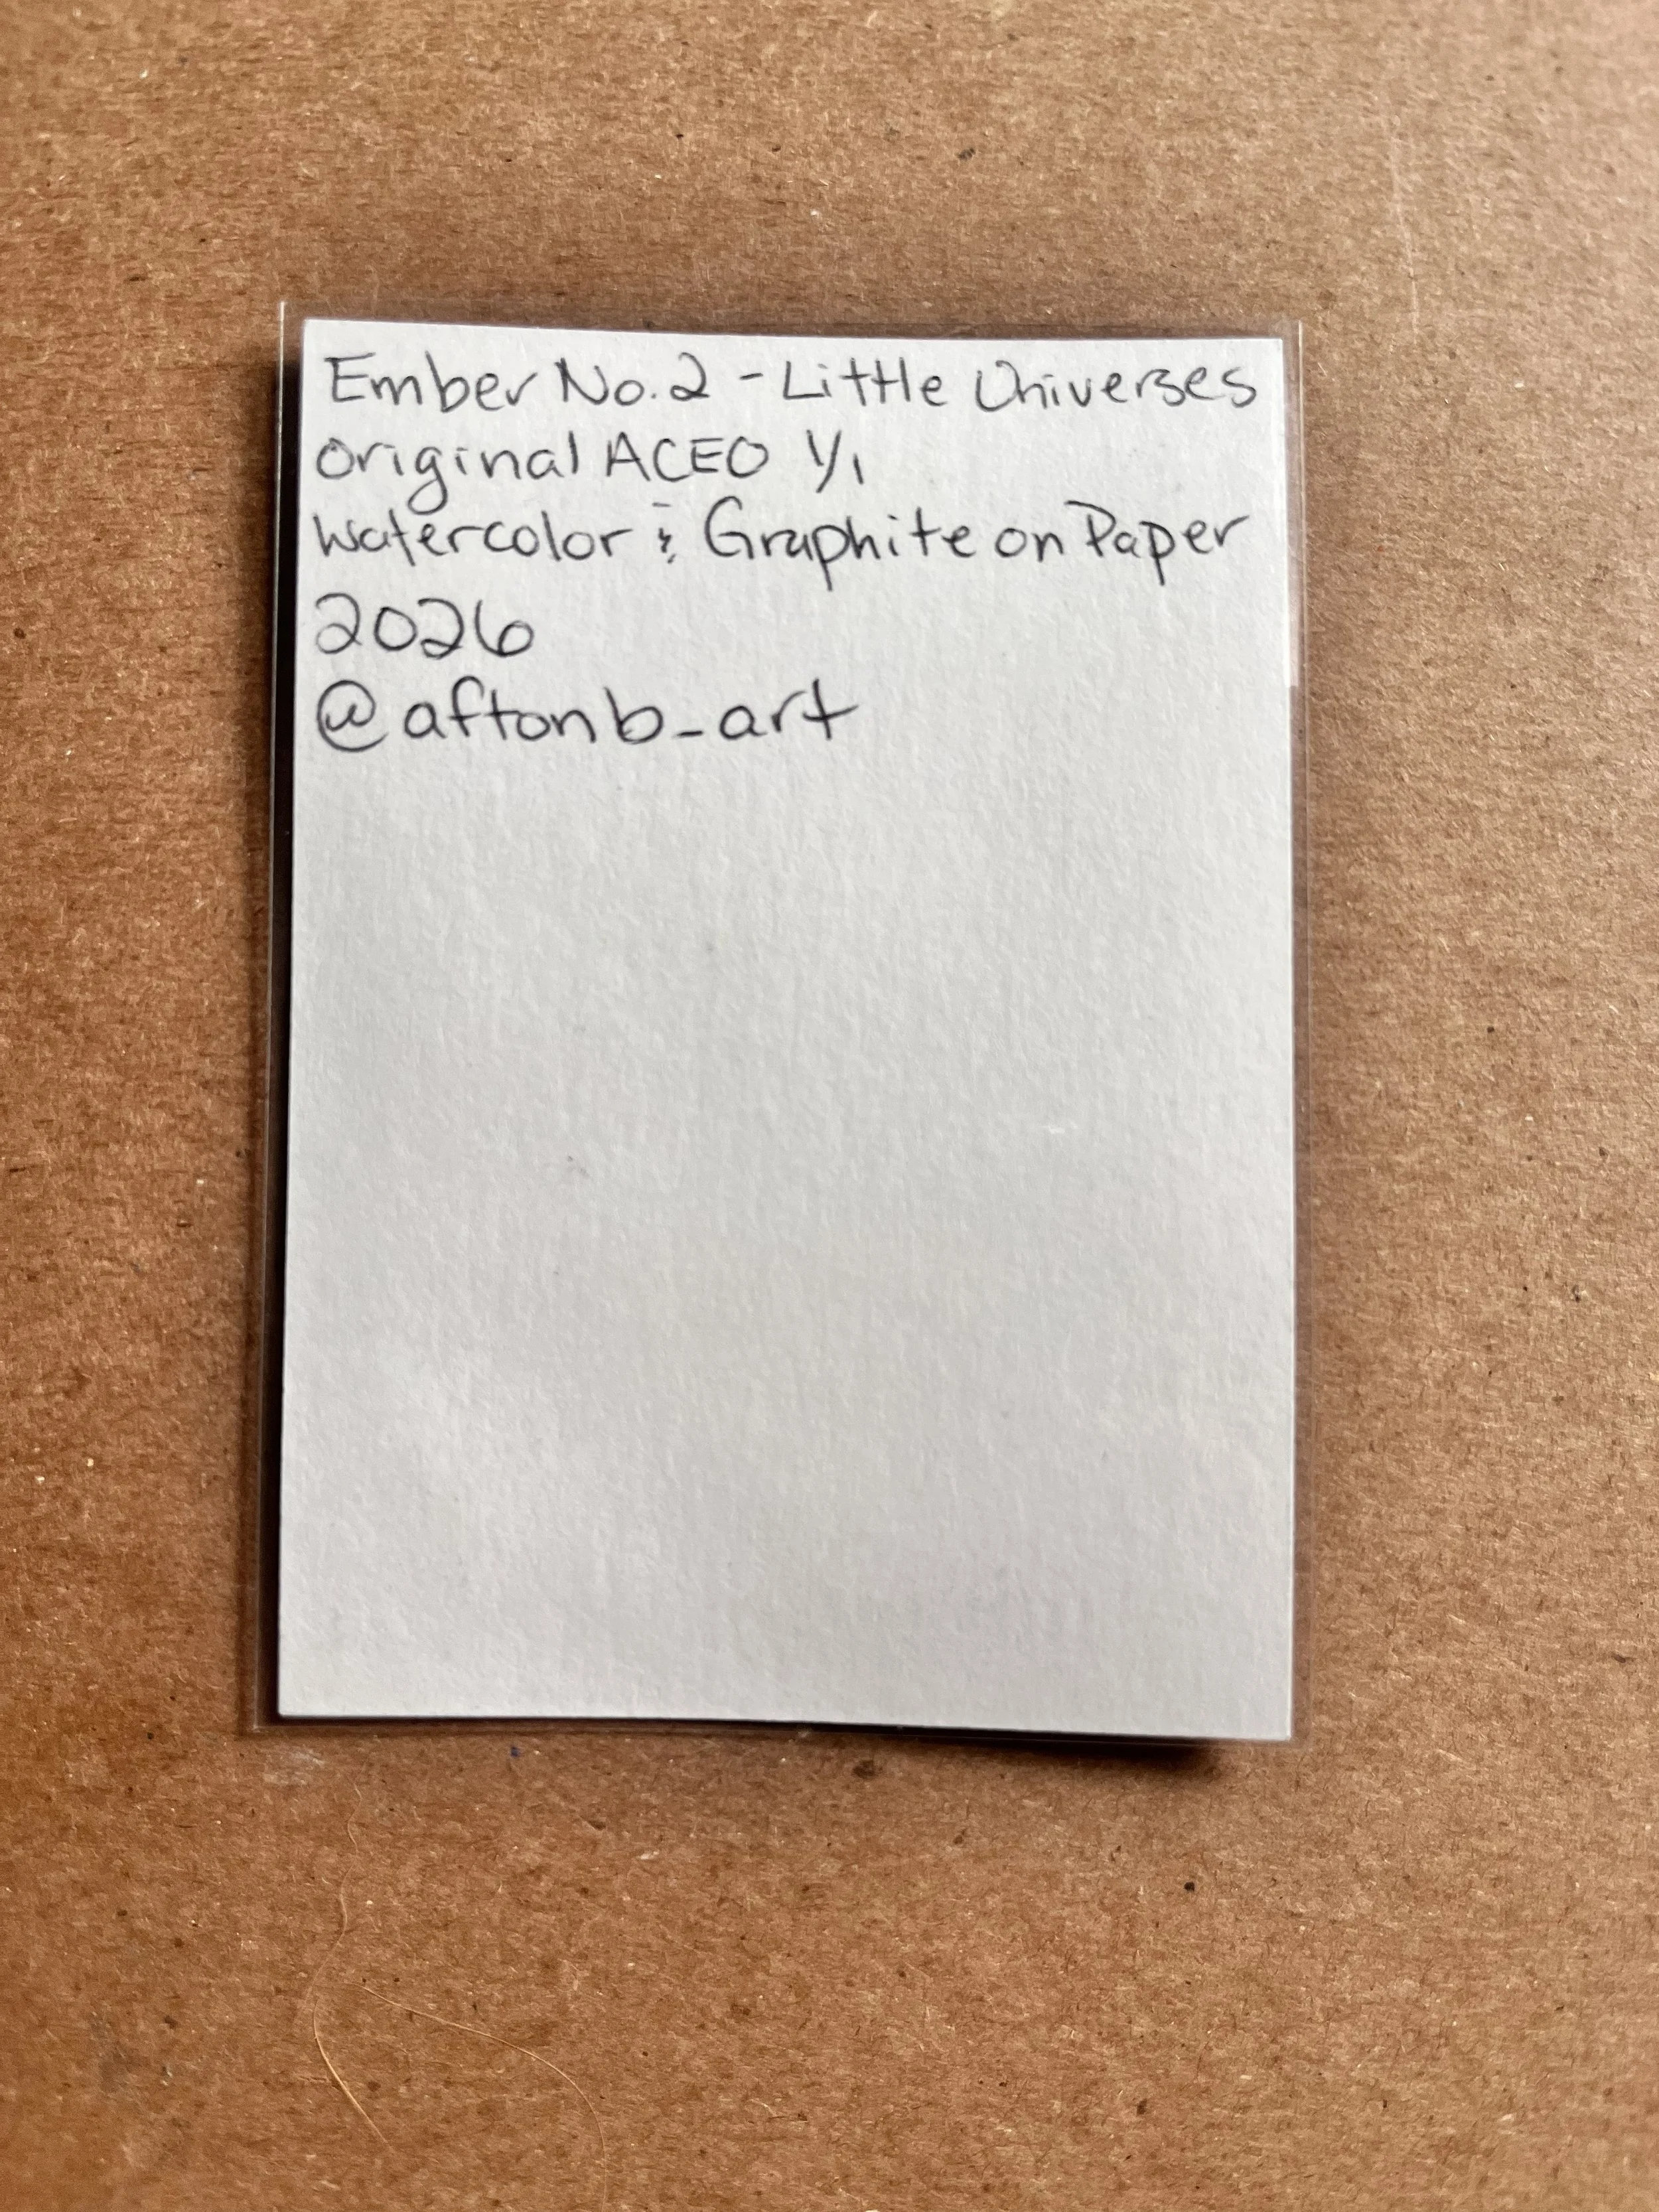 Ember No. 2 - Little Universes
Original ACEO 1/1
Watercolor & Graphite on Paper
2026
@aftonb_art